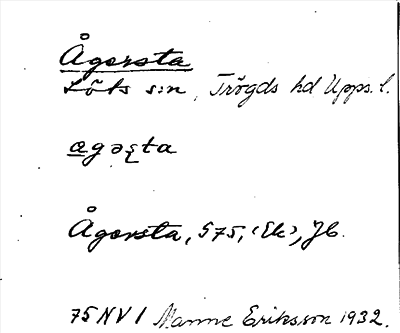 Ågersta
Löts s:n, Trögds hd Upps. l.
ægəʂta
Ågersta, 575, (Ek), Jb.
75 NV 1 Manne Eriksson 1932.